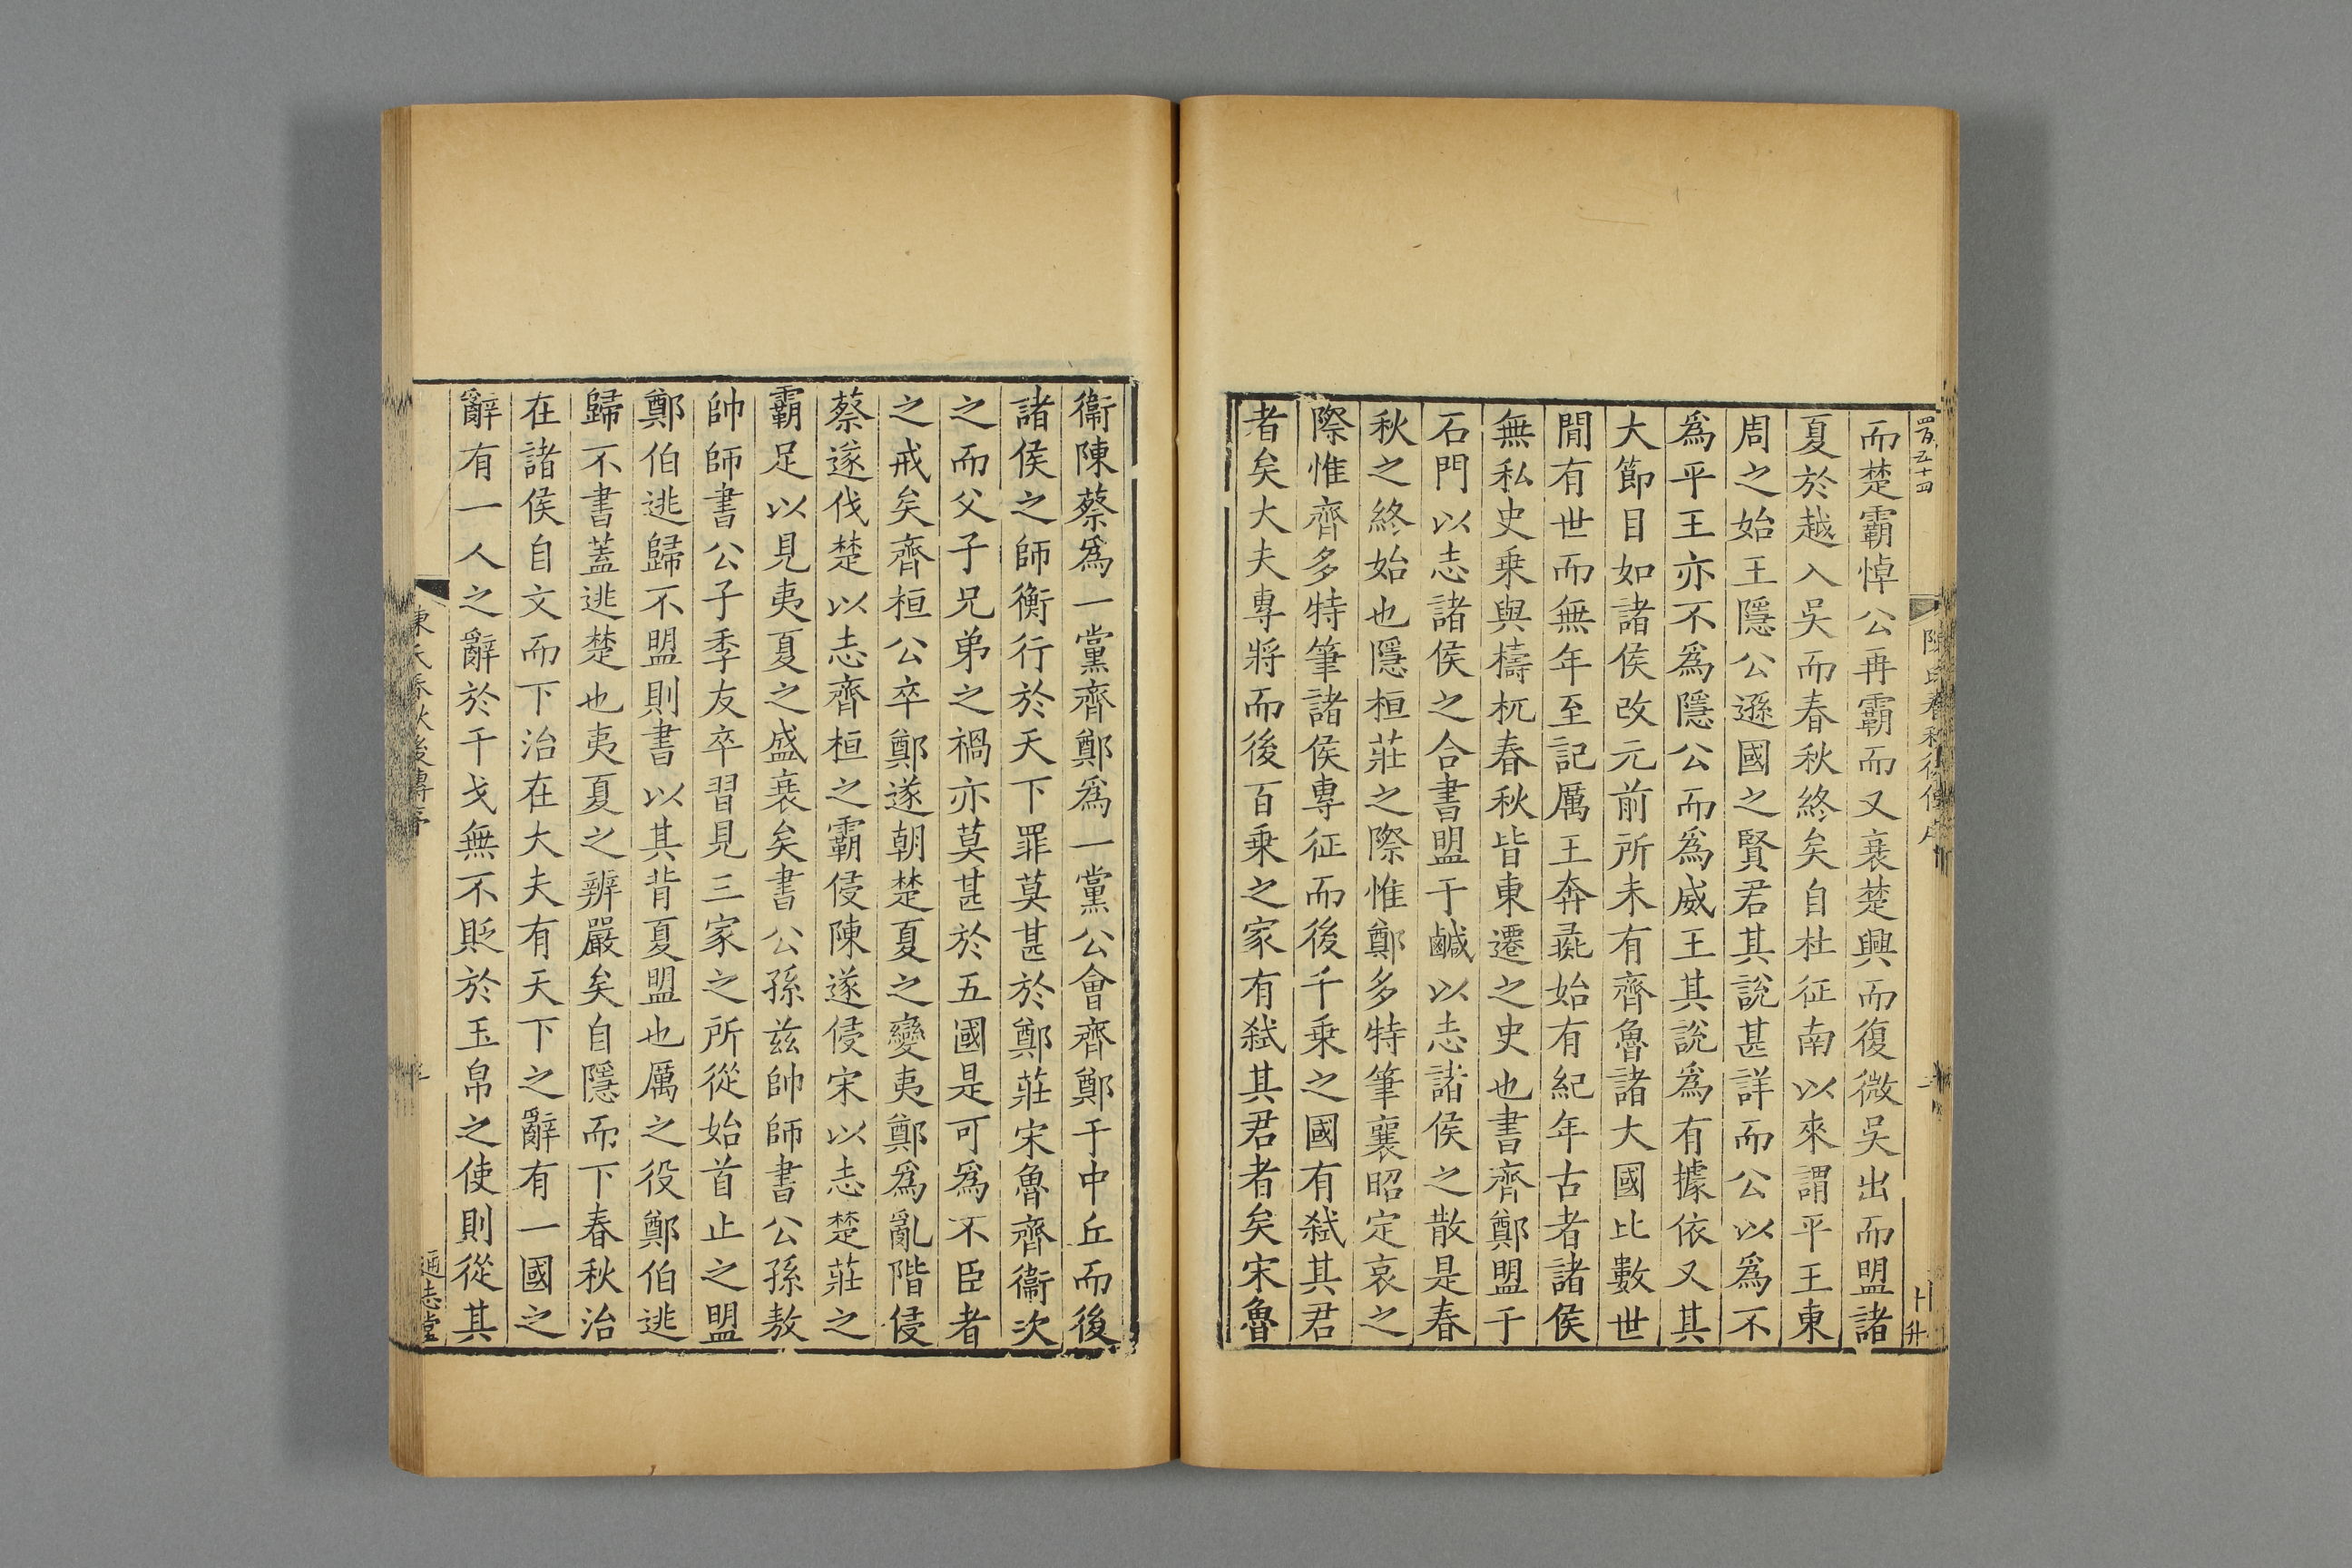 四百五十四
而楚霸悼公再霸而又衰楚興而復微吳出而盟諸
夏於越入吳而春秋終矣自杜征南以來謂平王東
周之始王隱公遜國之賢君其說甚詳而公以爲不
爲平王亦不爲隱公而爲威王其說爲有據依又其
大節目如諸侯改元前所未有齊魯諸大國比數世
閒有世而無年至記厲王奔彘始有紀年古者諸侯
無私史乗與檮杌春秋皆東遷之史也書齊鄭盟于
石門以志諸侯之合書盟于鹹以志諸侯之散是春
秋之終始也隱桓莊之際惟鄭多特筆襄昭定哀之
際惟齊多特筆諸侯專征而後千乗之國有弑其君
者矣大夫專將而後百乗之家有弑其君者矣宋魯
衞陳蔡爲一黨齊鄭爲一黨公會齊鄭于中丘而後
諸侯之師衡行於天下罪莫甚於鄭莊宋魯齊衞次
之而父子兄弟之禍亦莫甚於五國是可爲不臣者
之戒矣齊桓公卒鄭遂朝楚夏之變夷鄭爲亂階侵
蔡遂伐楚以志齊桓之霸侵陳遂侵宋以志楚莊之
霸足以見夷夏之盛衰矣書公孫兹帥師書公孫敖
帥師書公子季友卒習見三家之所從始首止之盟
鄭伯逃歸不盟則書以其背夏盟也厲之役鄭伯逃
歸不書蓋逃楚也夷夏之辨嚴矣自隱而下春秋治
在諸侯自文而下治在大夫有天下之辭有一國之
辭有一人之辭於干戈無不貶於玉帛之使則從其
陳氏春秋後傳序
通志堂